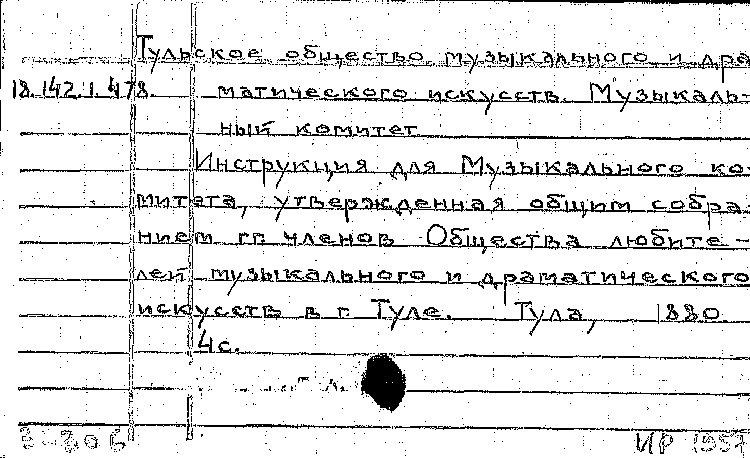 Тульское общество музыкального и дра
18.142.1.478. матического искусств. Музыкаль-
ный комитет
Инструкция для Музыкального ко-
митета, утвержденная общим собра-
нием гг. членов Общества любите-
лей музыкального и драматического
искусств в г. Туле. Тула, 1880.
4с.
ИР 1957